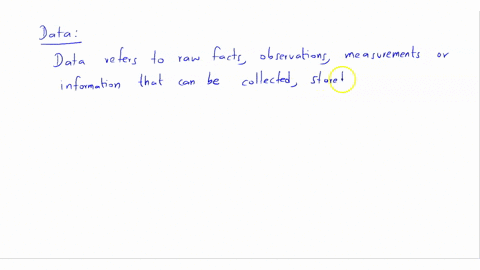 Data:
Data refers to raw facts, observations, measurements or
information that can be collected,